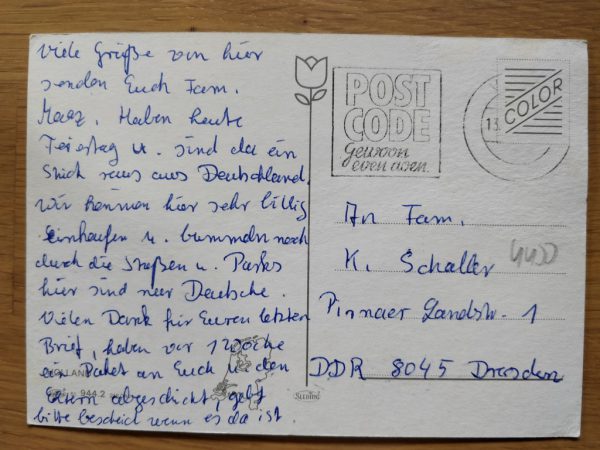 Viele Grüße von hier
senden Euch Fam.
Haben heute
Feiertag u. sind da ein
Stück raus aus Deutschland.
Wir können hier sehr billig
einkaufen u. bummeln noch
durch die Straßen u. Parks
hier sind nur Deutsche.
Vielen Dank für Euren letzten
Brief, haben vor 1 Woche
ein Paket an Euch u. den
Eltern abgeschickt, gebt
bitte bescheid wenn es da ist.
944.2
POST
CODE
Gewoon
even doen.
13.
COLOR
An Fam.
K. Schaller
Pirnaer Landstr. 1
DDR 8045 Dresden